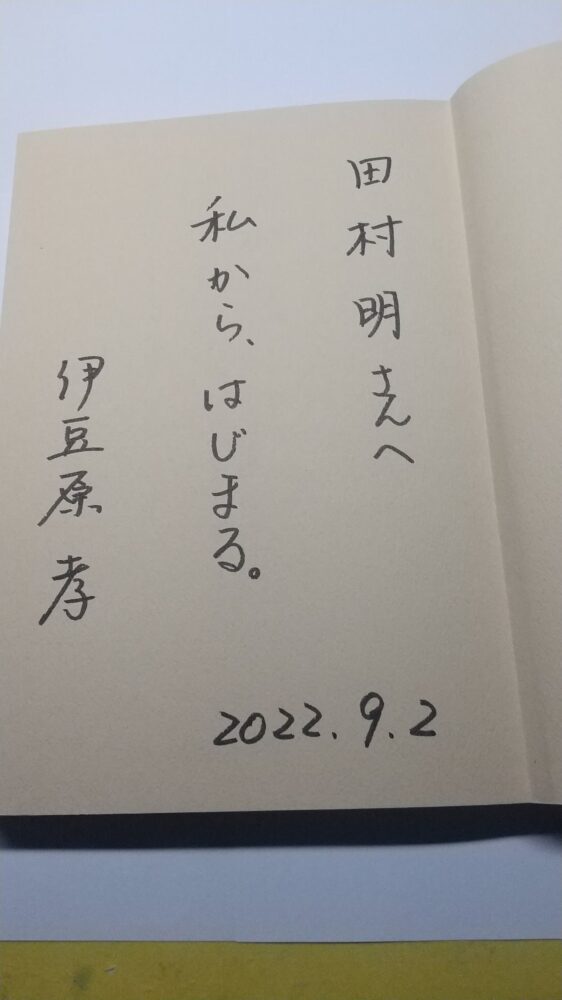 田村明さんへ
私から、はじまる。
伊豆原孝
2022.9.2